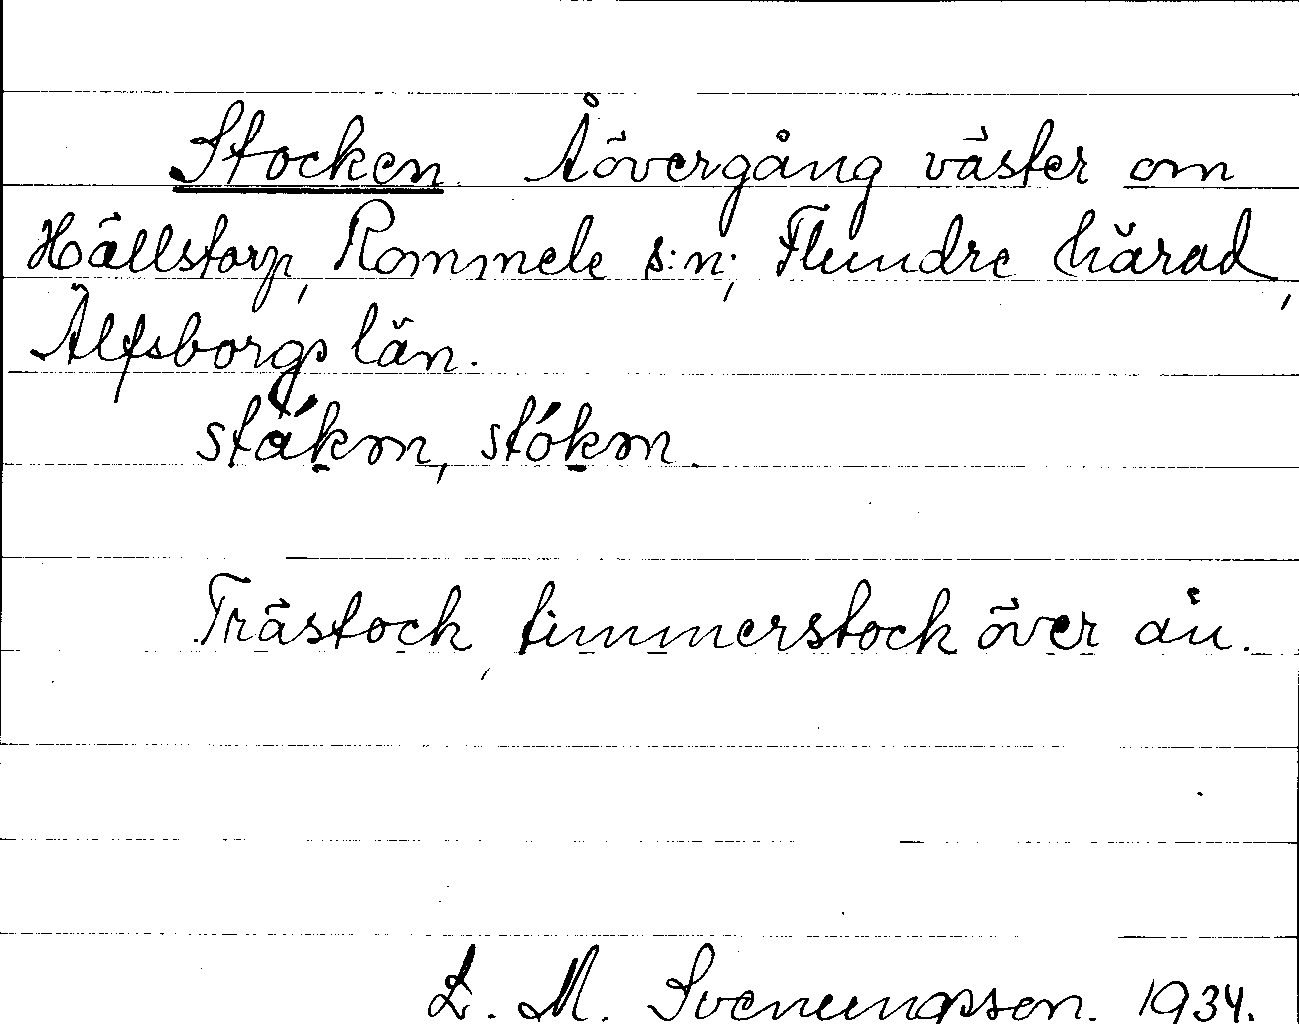 Stocken. Åövergång väster om
Hällstorp, Rommele s:n; Flundre härad,
Älfsborgs län.
ståkm, stókm.
Trästock, timmerstock över ån.
L. M. Svenungsson. 1934.